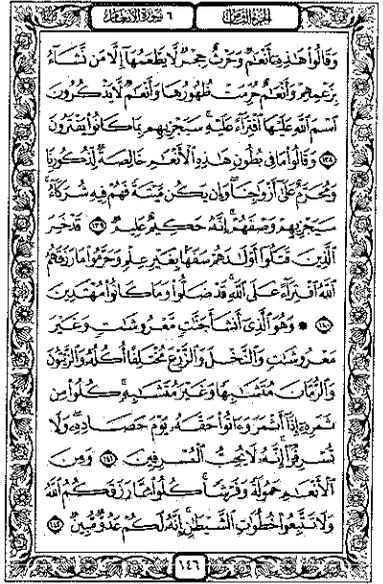 الجزء الثامن
٦ سورة الأنعام
وَقَالُوا۟ هَٰذِهِۦٓ أَنْعَٰمٌ وَحَرْثٌ حِجْرٌ لَّا يَطْعَمُهَآ إِلَّا مَن نَّشَآءُ
بِزَعْمِهِمْ وَأَنْعَٰمٌ حُرِّمَتْ ظُهُورُهَا وَأَنْعَٰمٌ لَّا يَذْكُرُونَ
ٱسْمَ ٱللَّهِ عَلَيْهَا ٱفْتِرَآءً عَلَيْهِ ۚ سَيَجْزِيهِم بِمَا كَانُوا۟ يَفْتَرُونَ
١٣٨ وَقَالُوا۟ مَا فِى بُطُونِ هَٰذِهِ ٱلْأَنْعَٰمِ خَالِصَةٌ لِّذُكُورِنَا
وَمُحَرَّمٌ عَلَىٰٓ أَزْوَٰجِنَا ۖ وَإِن يَكُن مَّيْتَةً فَهُمْ فِيهِ شُرَكَآءُ ۚ
سَيَجْزِيهِمْ وَصْفَهُمْ ۚ إِنَّهُۥ حَكِيمٌ عَلِيمٌ ١٣٩ قَدْ خَسِرَ
ٱلَّذِينَ قَتَلُوٓا۟ أَوْلَٰدَهُمْ سَفَهًۢا بِغَيْرِ عِلْمٍ وَحَرَّمُوا۟ مَا رَزَقَهُمُ
ٱللَّهُ ٱفْتِرَآءً عَلَى ٱللَّهِ ۚ قَدْ ضَلُّوا۟ وَمَا كَانُوا۟ مُهْتَدِينَ
١٤٠ ۞ وَهُوَ ٱلَّذِىٓ أَنشَأَ جَنَّٰتٍ مَّعْرُوشَٰتٍ وَغَيْرَ
مَعْرُوشَٰتٍ وَٱلنَّخْلَ وَٱلزَّرْعَ مُخْتَلِفًا أُكُلُهُۥ وَٱلزَّيْتُونَ
وَٱلرُّمَّانَ مُتَشَٰبِهًا وَغَيْرَ مُتَشَٰبِهٍ ۚ كُلُوا۟ مِن
ثَمَرِهِۦٓ إِذَآ أَثْمَرَ وَءَاتُوا۟ حَقَّهُۥ يَوْمَ حَصَادِهِۦ ۖ وَلَا
تُسْرِفُوٓا۟ ۚ إِنَّهُۥ لَا يُحِبُّ ٱلْمُسْرِفِينَ ١٤١ وَمِنَ
ٱلْأَنْعَٰمِ حَمُولَةً وَفَرْشًا ۚ كُلُوا۟ مِمَّا رَزَقَكُمُ ٱللَّهُ
وَلَا تَتَّبِعُوا۟ خُطُوَٰتِ ٱلشَّيْطَٰنِ ۚ إِنَّهُۥ لَكُمْ عَدُوٌّ مُّبِينٌ ١٤٢
١٤٦